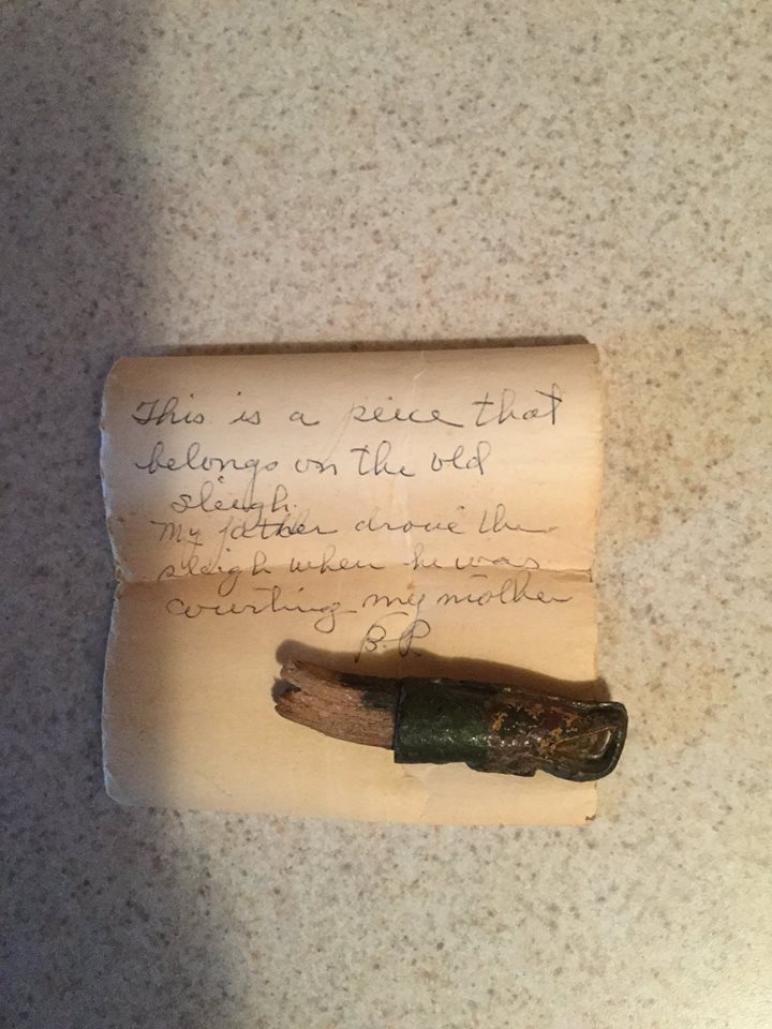 This is a peice that
belongs on the old
sleigh.
My father drove the
sleigh when he was
courting my mother
B.P.